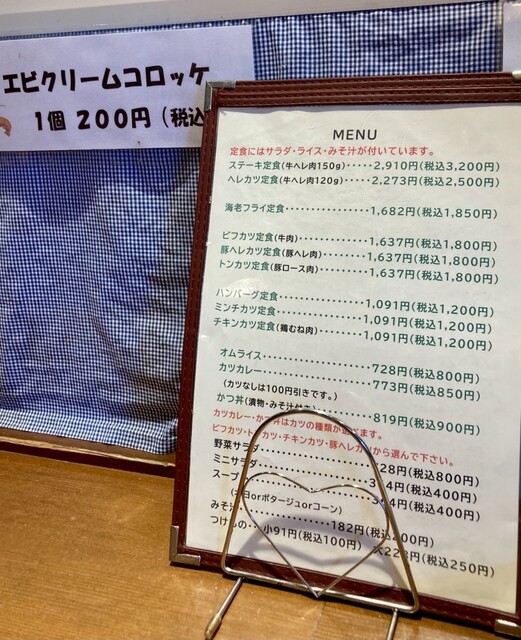 エビクリームコロッケ
1個 200円(税込
MENU
定食にはサラダ・ライス・みそ汁が付いています。
ステーキ定食(牛ヘレ肉150g)・・・・・2,910円(税込3,200円)
ヘレカツ定食(牛ヘレ肉120g)・・・・・2,273円(税込2,500円)
海老フライ定食・・・・・・・・・・・・・・1,682円(税込1,850円)
ビフカツ定食(牛肉)・・・・・・・・・・・1,637円(税込1,800円)
豚ヘレカツ定食(豚ヘレ肉)・・・・・・1,637円(税込1,800円)
トンカツ定食(豚ロース肉)・・・・・・1,637円(税込1,800円)
ハンバーグ定食・・・・・・・・・・・・・・1,091円(税込1,200円)
ミンチカツ定食・・・・・・・・・・・・・・1,091円(税込1,200円)
チキンカツ定食(鶏むね肉)・・・・・・1,091円(税込1,200円)
オムライス・・・・・・・・・・・・・・・・・728円(税込800円)
カツカレー・・・・・・・・・・・・・・・・・773円(税込850円)
(カツなしは100円引きです。)
かつ丼(漬物・みそ汁付き)・・・・・・819円(税込900円)
カツカレー・かつ丼はカツの種類が選べます。
ビフカツ・トンカツ・チキンカツ・豚ヘレカツから選んで下さい。
野菜サラダ・・・・・・・・・・・・・728円(税込800円)
ミニサラダ・・・・・・・・・・・・・364円(税込400円)
スープ・・・・・・・・・・・・・・・・364円(税込400円)
orポタージュorコーン)
みそ汁・・・・・・・・・・・・・・・182円(税込200円)
つけもの・・小91円(税込100円) 大228円(税込250円)